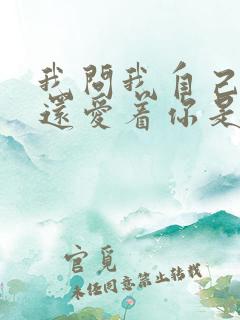 我問我自己
還愛着你是
官覓
未经同意禁止转载